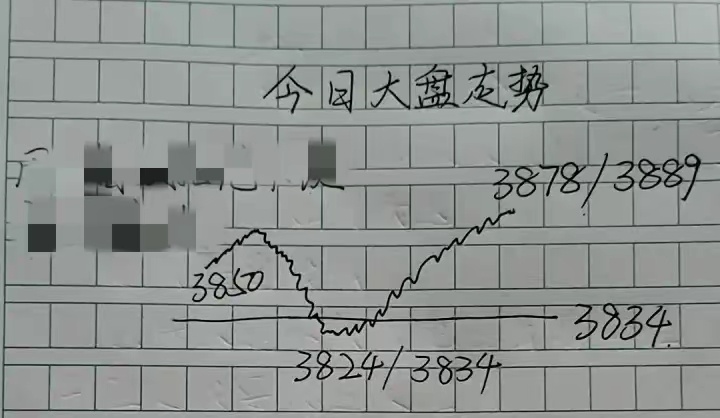 今日大盘走势
3878/3889
3850
3834
3824/3834